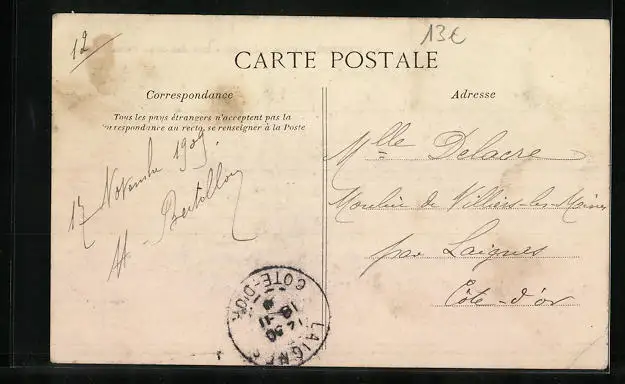 12
13€
CARTE POSTALE
Correspondance
Tous les pays étrangers n'acceptent pas la
correspondance au recto, se renseigner à la Poste
17 Novembre 1909.
A. Bertillon
Adresse
Mlle Delacre
Moulin de Villiers-les-Moines
par Laignes
Côte-d'or
LAIGNES
CÔTE-D'OR